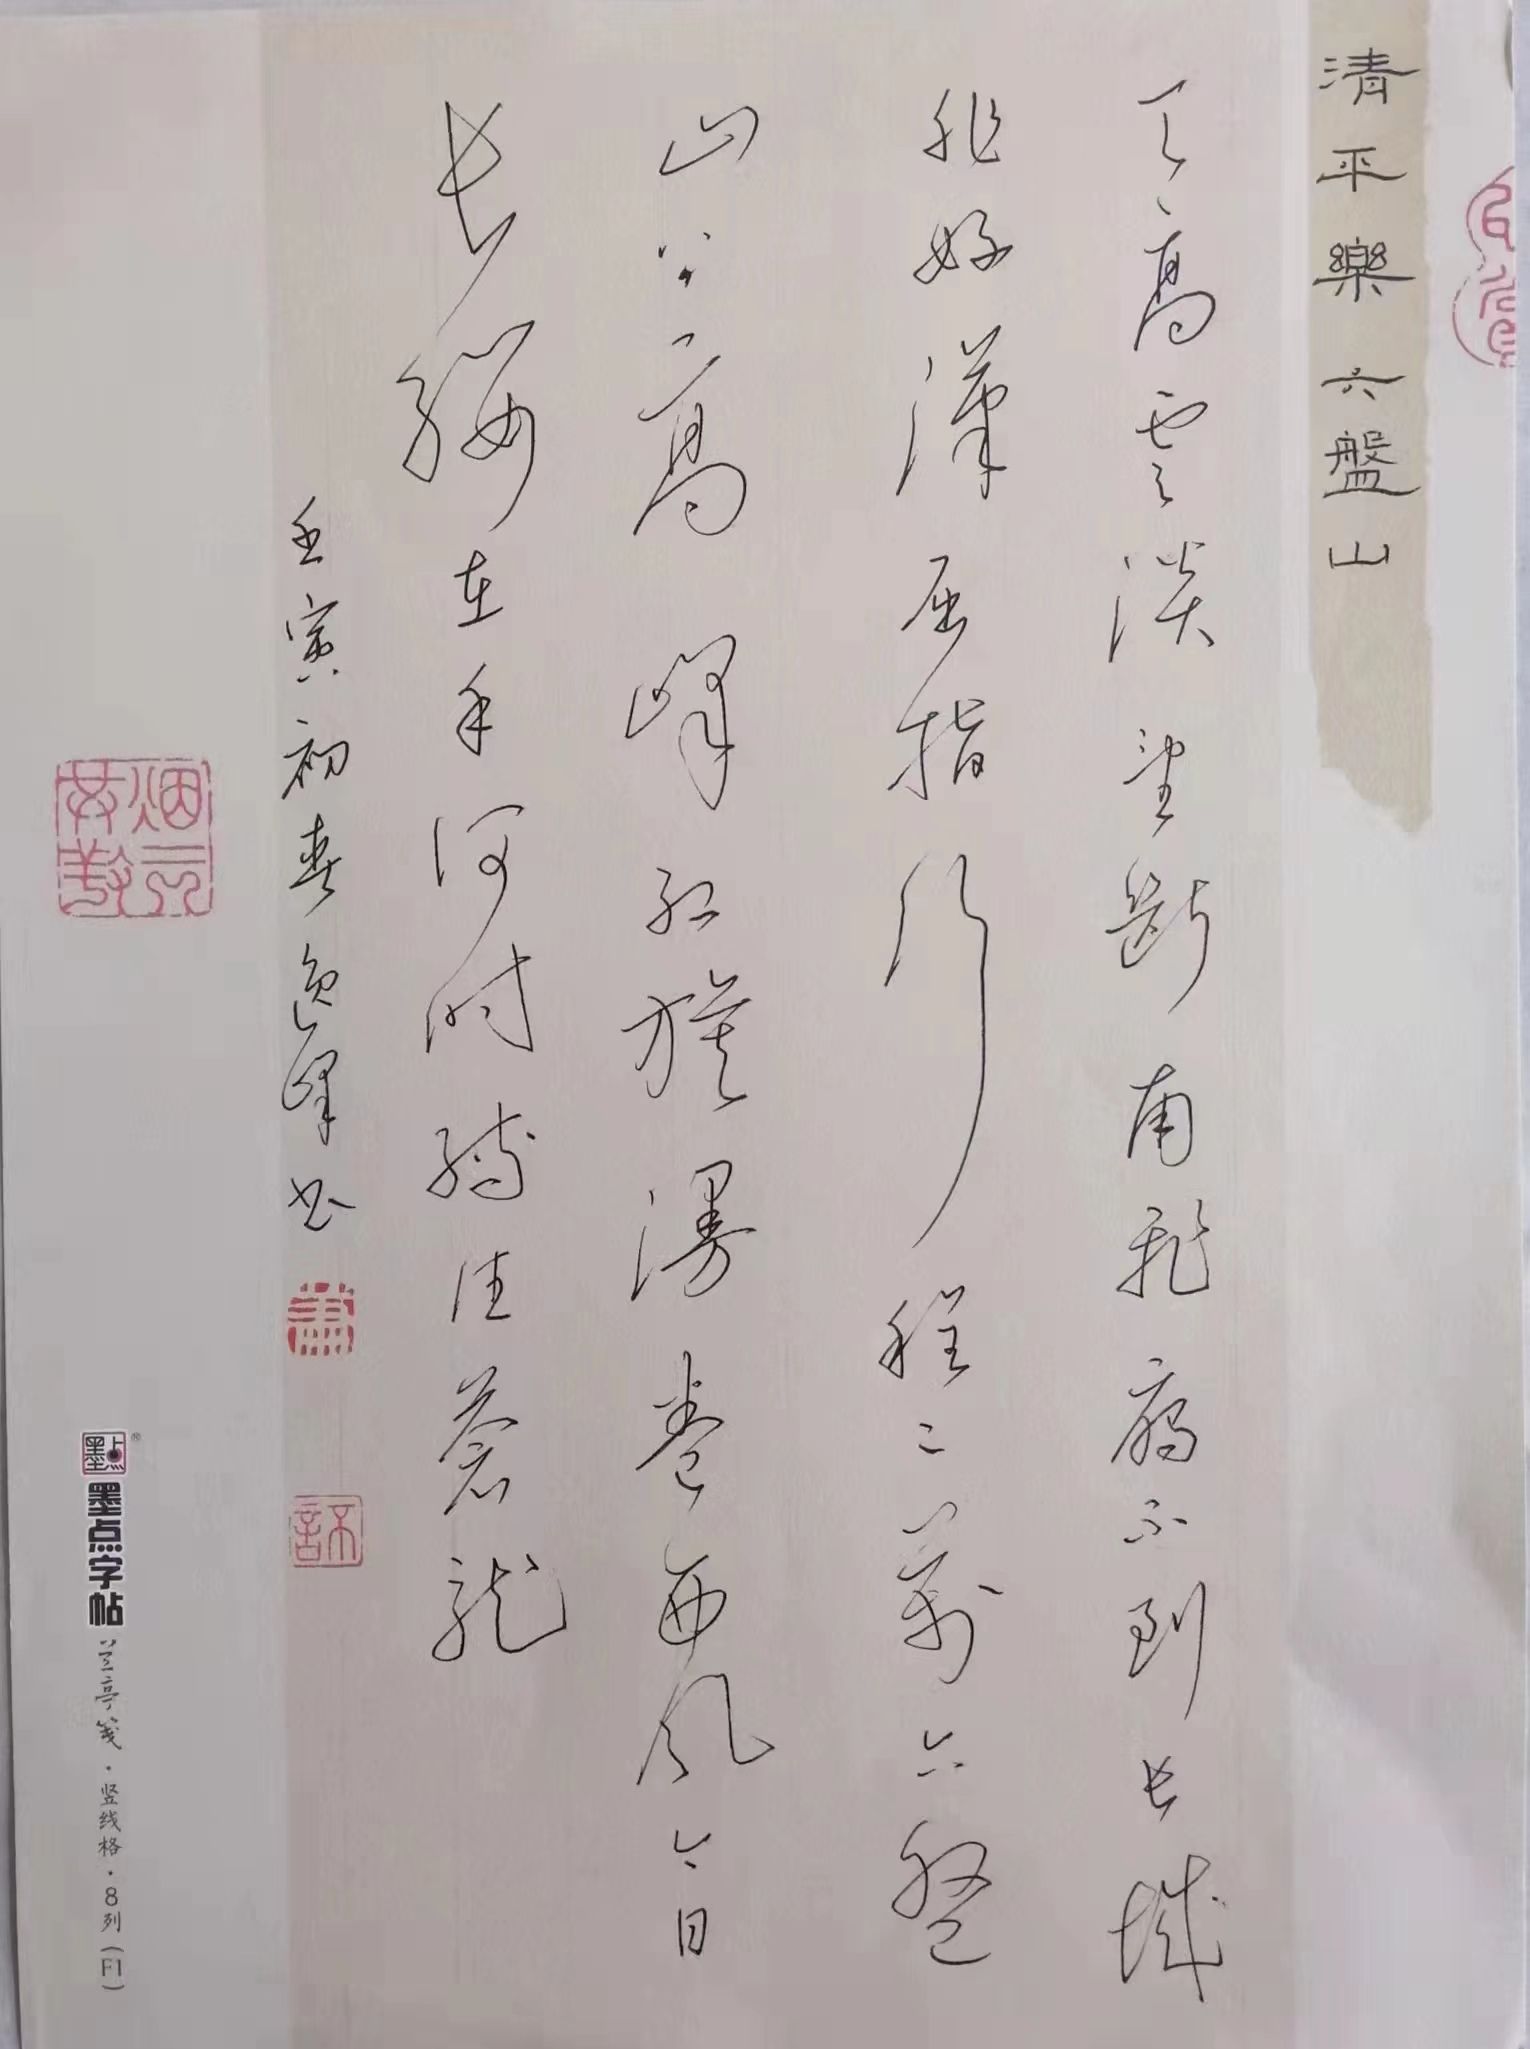 清平樂六盤山
天高雲淡望斷南飛雁不到長城
非好漢屈指行程二萬六盤
山上高峰紅旗漫卷西風今日
長纓在手何時縛住蒼龍
壬寅初春逸峰书
墨点
墨点字帖
兰亭笺·竖线格·8列(F1)